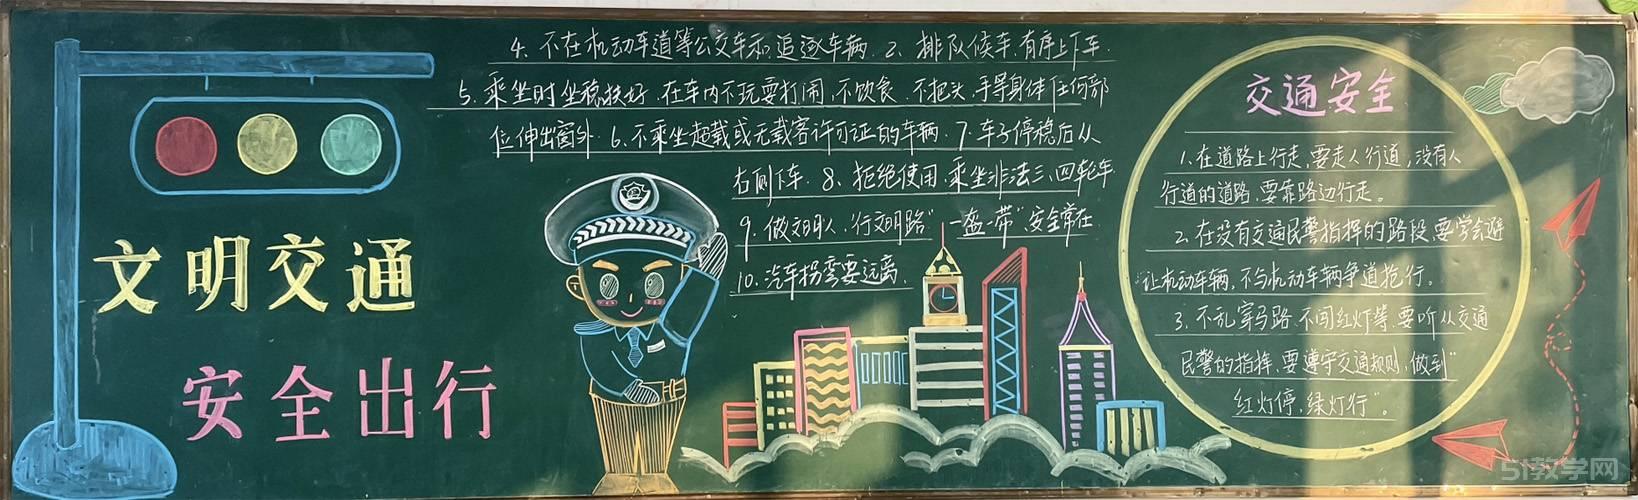 文明交通
安全出行
4. 不在机动车道等公交车和追逐车辆. 2、排队候车.有序上下车.
5. 乘坐时坐稳扶好.在车内不玩耍打闹,不饮食.不把头、手等身体任何部
位伸出窗外. 6、不乘坐超载或无载客许可证的车辆. 7. 车子停稳后从
右侧下车. 8、拒绝使用、乘坐非法三、四轮车
9. 做文明人、"行文明路" 一盔一带"安全常在
10. 汽车拐弯要远离.
交通安全
1. 在道路上行走,要走人行道,没有人
行道的道路,要靠路边行走。
2. 在没有交通民警指挥的路段,要学会避
让机动车辆,不与机动车辆争道抢行。
3. 不乱穿马路.不闯红灯等.要听从交通
民警的指挥,要遵守交通规则,做到"
红灯停,绿灯行"。
51教学网